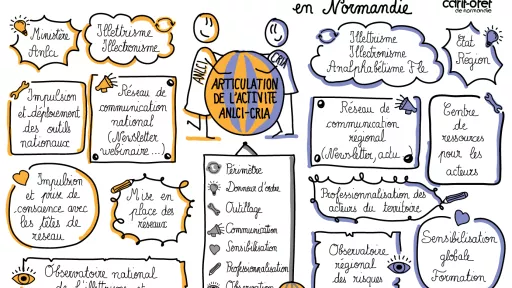 en Normandie
carif-oref
de normandie
Ministère
Anlci
Illettrisme
Illectronisme
ANLCI
CRIA
ARTICULATION
DE L'ACTIVITÉ
ANLCI-CRIA
Illettrisme
Illectronisme
Analphabétisme Fle
Etat
Région
Impulsion
et déploiement
des outils
nationaux
Réseau de
communication
national
(Newsletter
webinaire ...)
Réseau de
communication
régional
(Newsletter, actu...)
Centre
de
ressources
pour les
acteurs
Impulsion
et prise de
conscience avec
les têtes de
réseau
Mise en
place des
réseaux
Périmètre
Donneur d'ordre
Outillage
Communication
Sensibilisation
Professionnalisation
Observation
Professionnalisation des
acteurs du territoire
Sensibilisation
globale
Formation
Observatoire national
de l'illettrisme et
Observatoire
régional
des risques